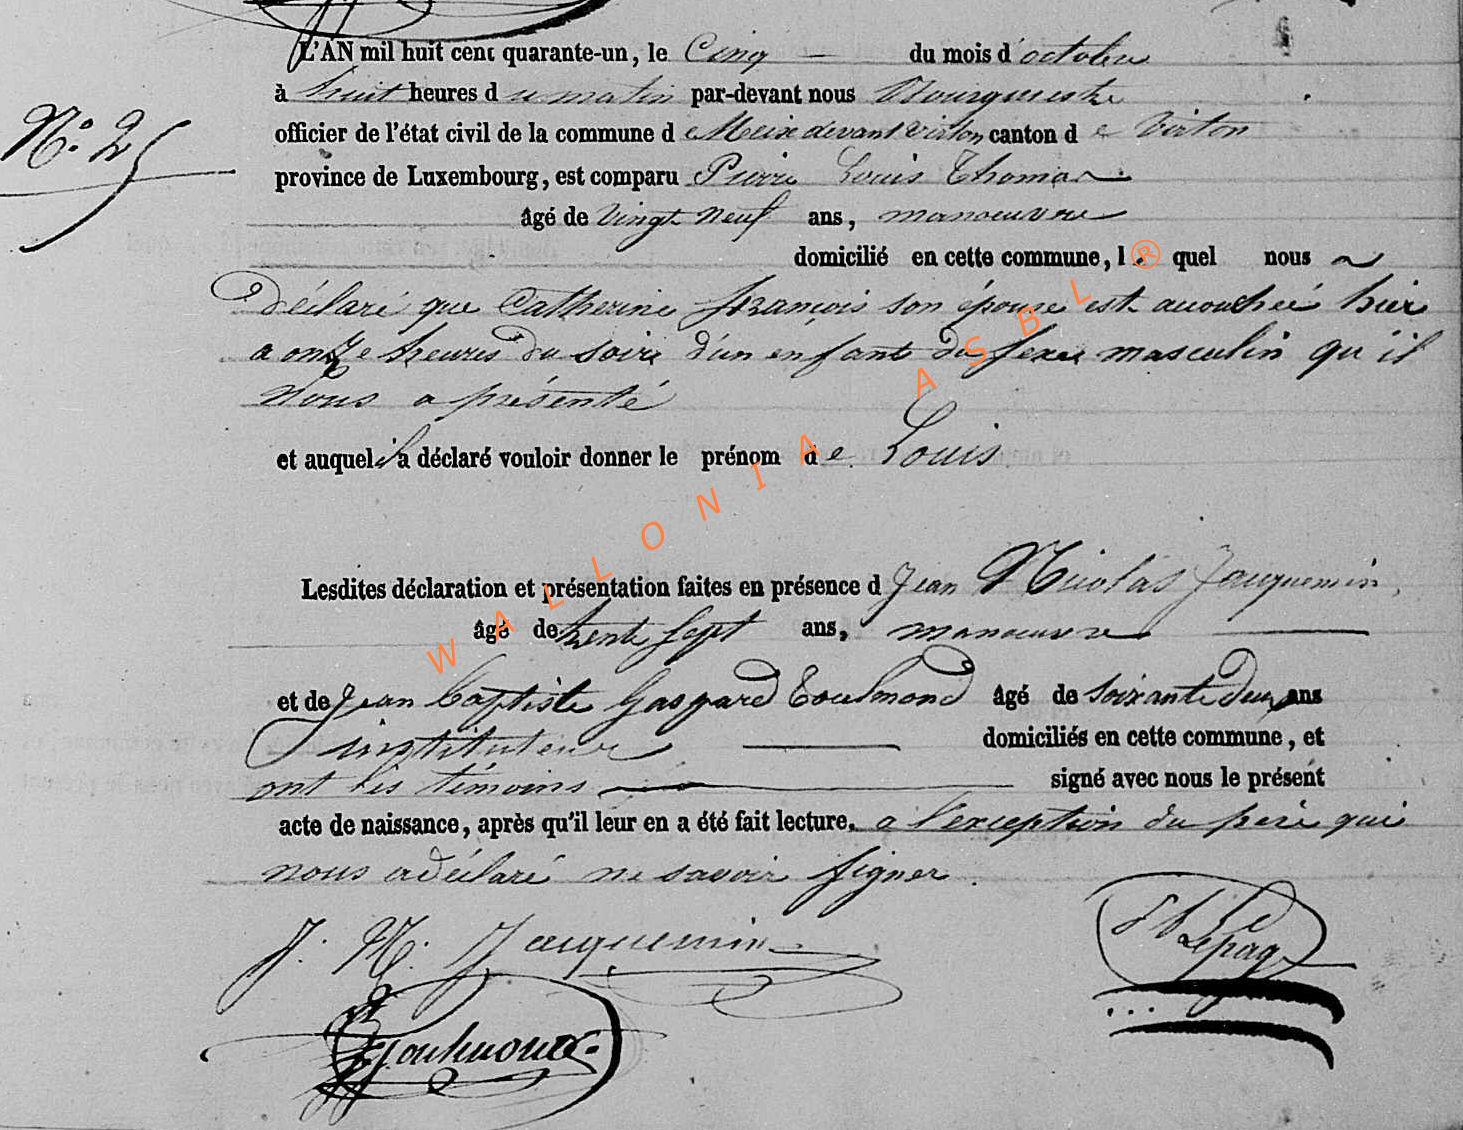 L'AN mil huit cent quarante-un, le Cinq — du mois d'octobre
à huit heures du matin par-devant nous Bourguemestre
N.° 25
officier de l'état civil de la commune de Meix devant virton canton de Virton
province de Luxembourg, est comparu Pierre Louis Thomas
âgé de vingt neuf ans, manoeuvre
domicilié en cette commune, l quel nous
Déclaré que Catherine françois son épouse est accouchée hier
a onze heures du soir d'un enfant du sexe masculin qu'il
Nous a présenté
et auquel il a déclaré vouloir donner le prénom de Louis
Lesdites déclaration et présentation faites en présence d Jean Nicolas Jacquemin,
âgé de trente sept ans, manoeuvre
et de Jean Baptiste Gaspard Toulmond âgé de soixante deux ans
instituteur — domiciliés en cette commune, et
ont les témoins — signé avec nous le présent
acte de naissance, après qu'il leur en a été fait lecture. a l'exception du père qui
nous a déclaré ne savoir signer.
J. N. Jacquemin
Lepage
Toulmond
WALLONIA ASBL ®